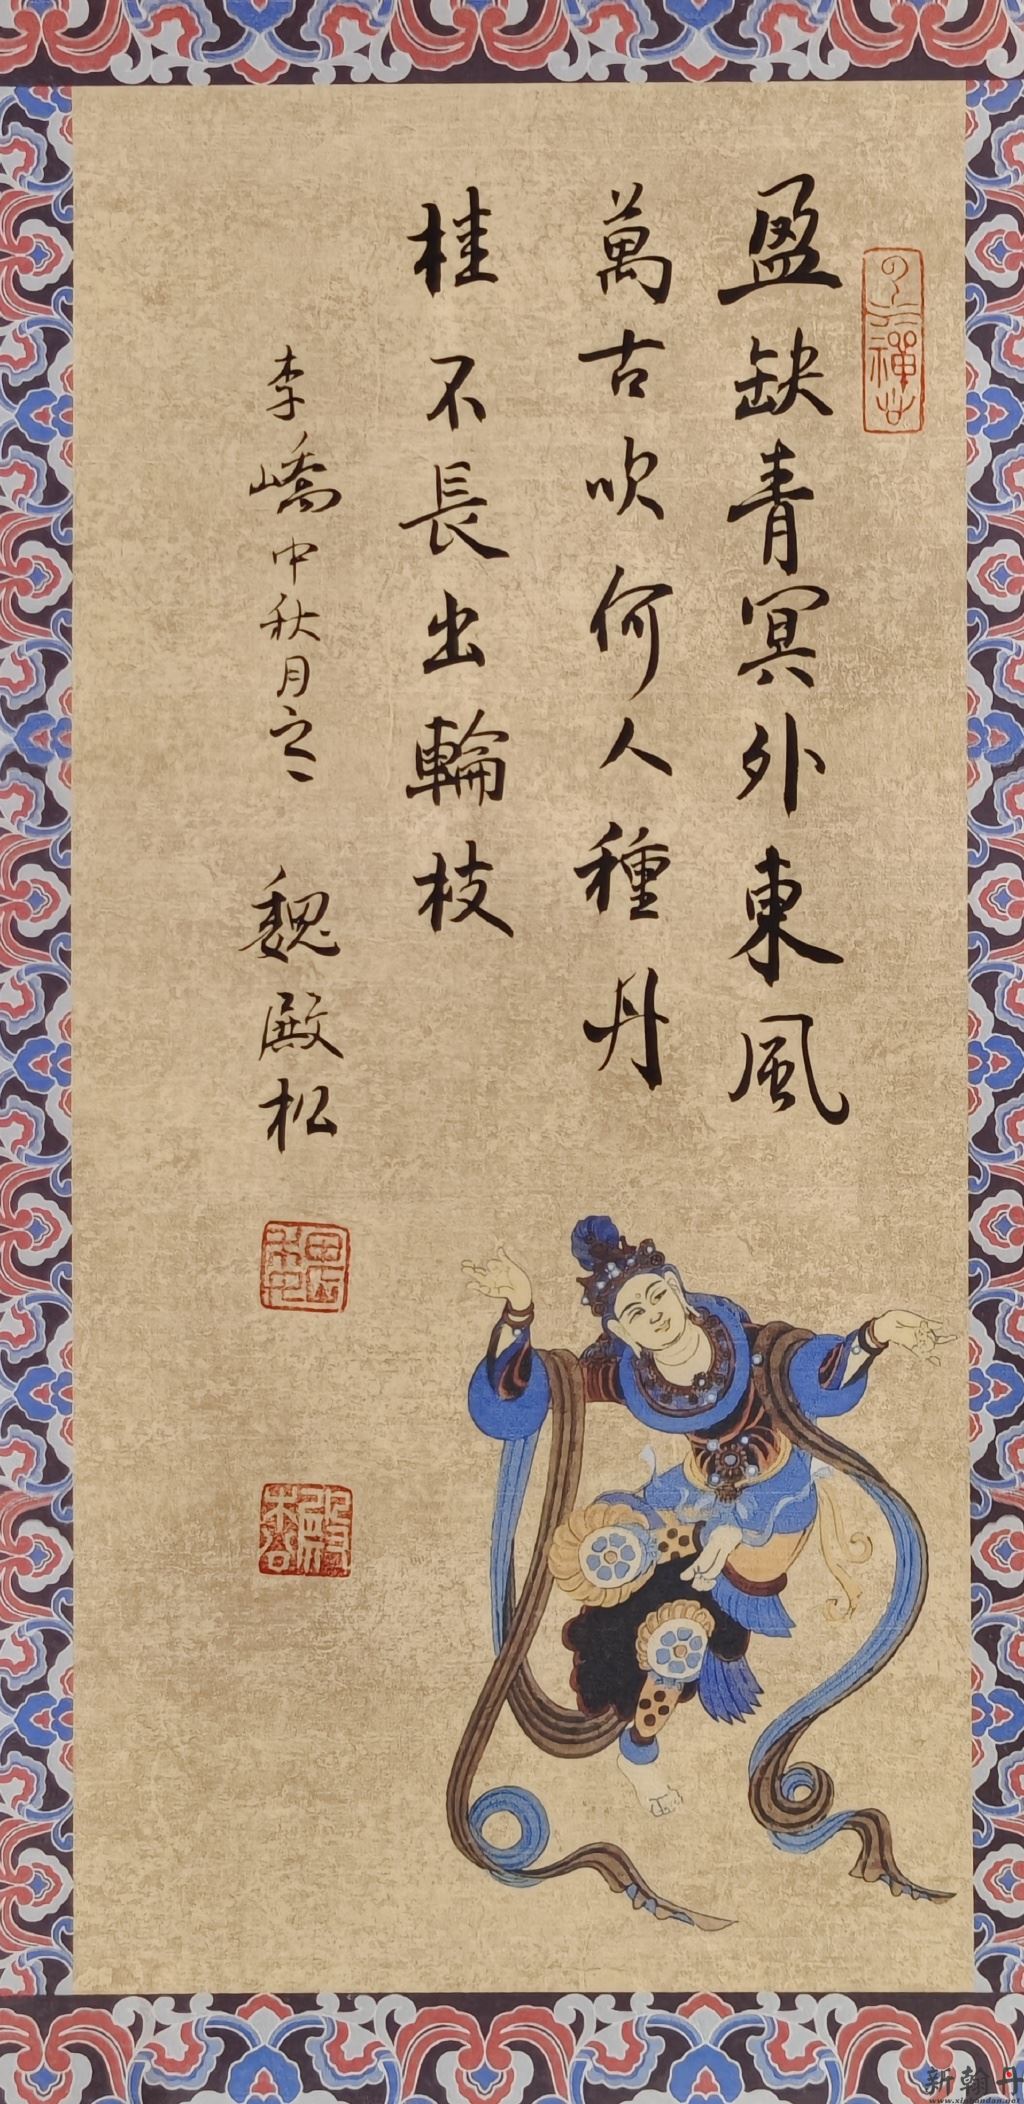 盈缺青冥外東風
萬古吹何人種丹
桂不長出輪枝
李嶠中秋月之二
魏殿松
新翰丹
www.xinhandan.net